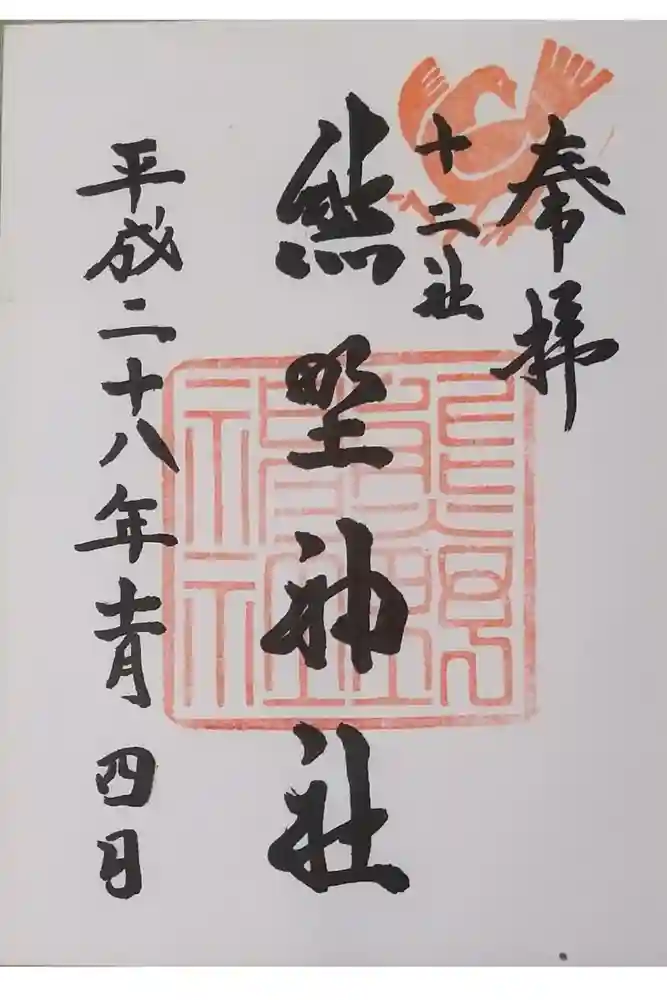 奉拝
十二社
熊野神社
平成二十八年十一月四日